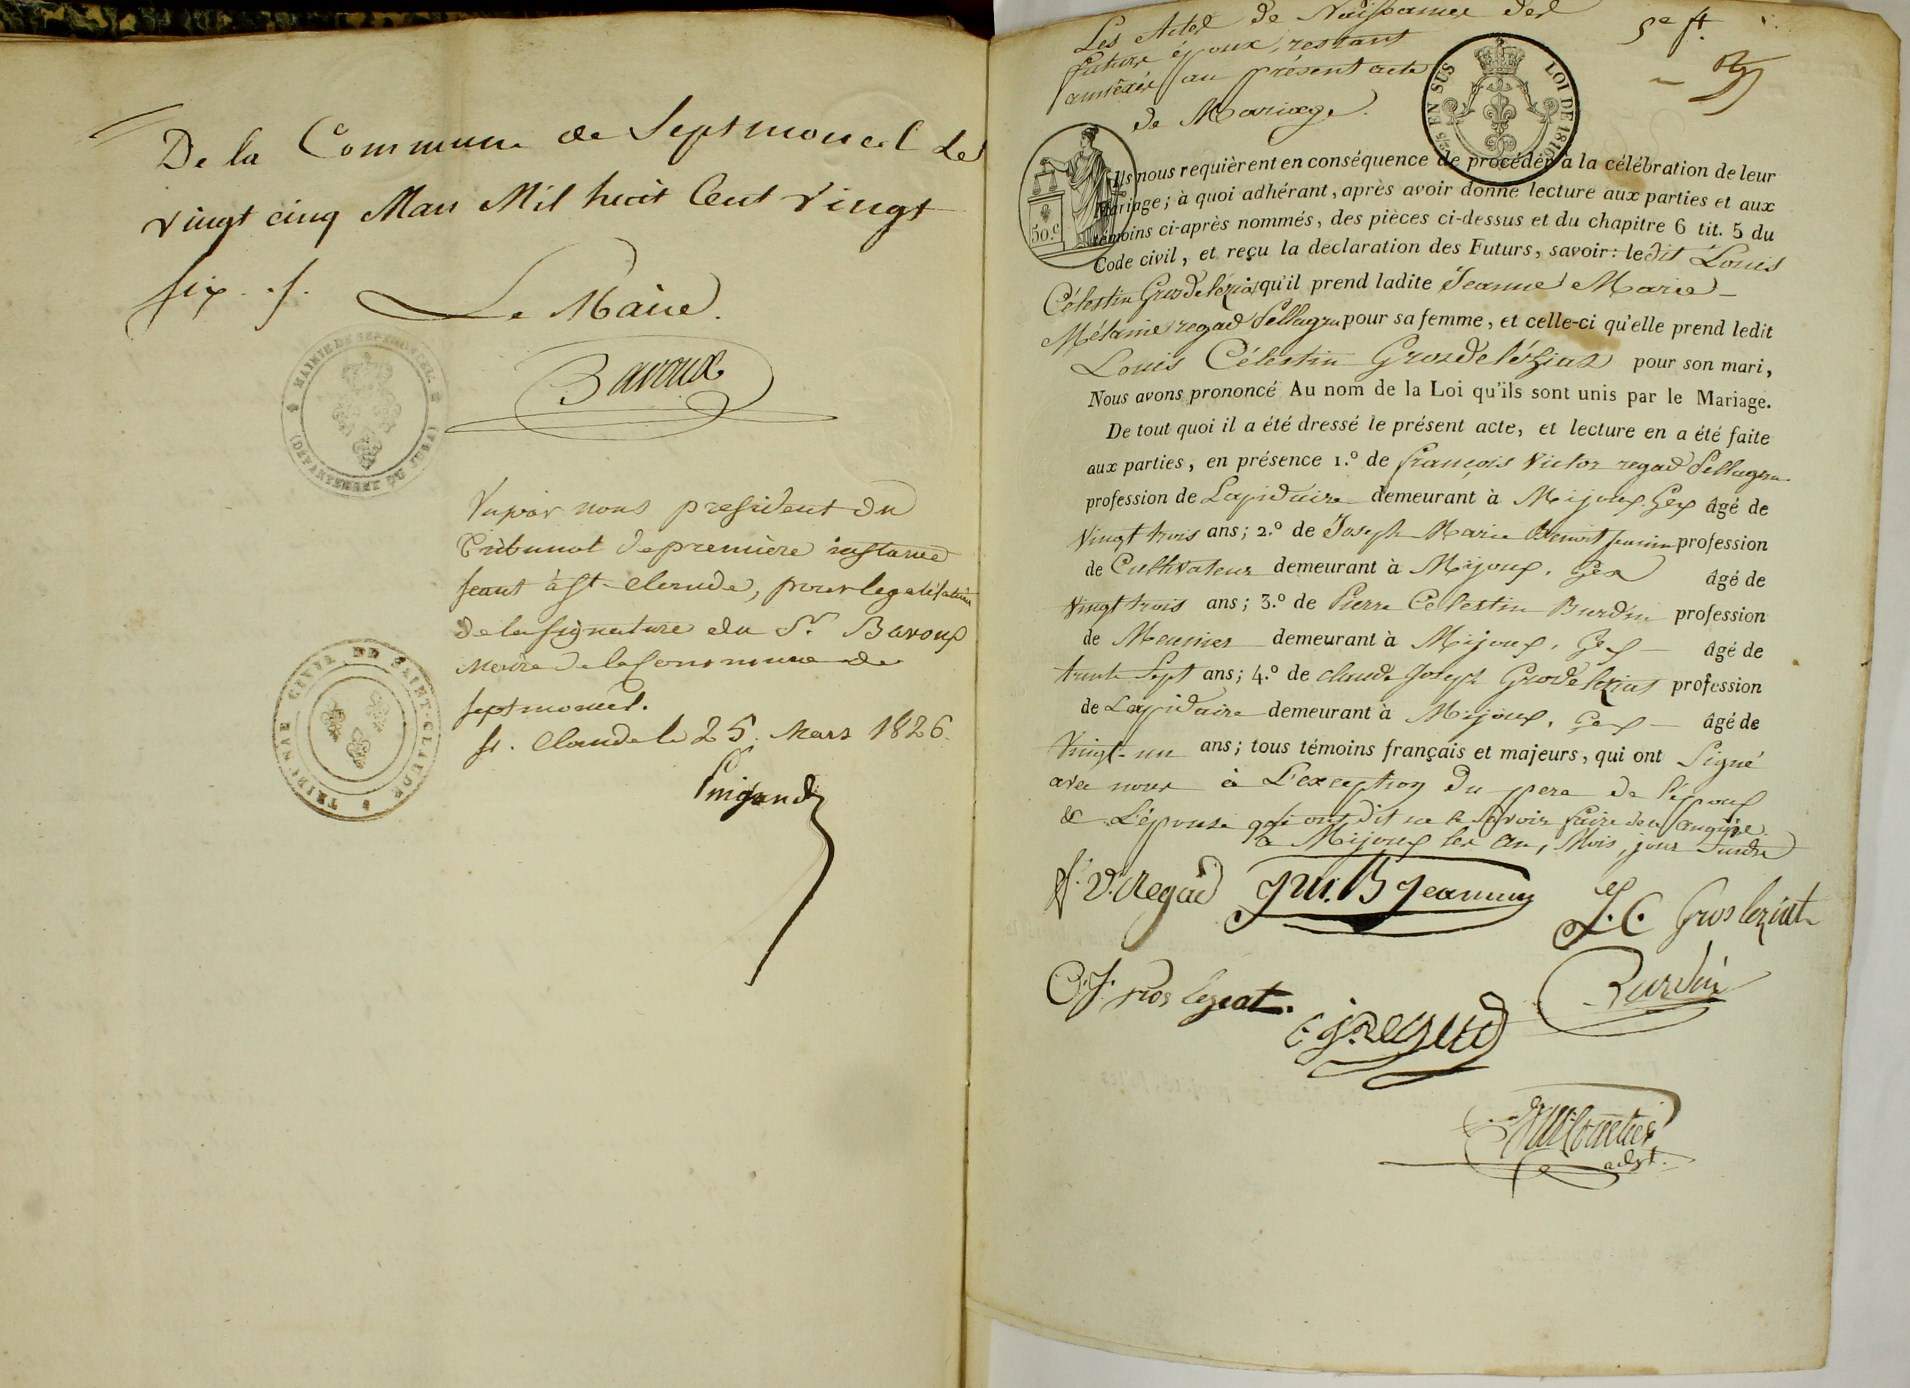 De la Commune de Septmoncel Le
vingt cinq Mars Mil huit Cent Vingt
six ./.
Le Maire.
Bavoux
MAIRIE DE SEPTMONCEL
(DEPARTEMENT DU JURA)
Vu par nous president du
Tribunal de première instance
seant à St. Claude, pour legalisation
de la signature du Sr. Bavoux
Maire de la Commune de
septmoncel.
St. Claude le 25. Mars 1826.
TRIBUNAL CIVIL DE SAINT-CLAUDE
Les Actes de Naissance des
futurs époux, restant
annexés au présent acte
de Mariage.
5e ft.
25 EN SUS LOI DE 1816.
50.c
Ils nous requièrent en conséquence de procéder à la célébration de leur
Mariage; à quoi adhérant, après avoir donné lecture aux parties et aux
témoins ci-après nommés, des pièces ci-dessus et du chapitre 6 tit. 5 du
Code civil, et reçu la déclaration des Futurs, savoir: ledit Louis
Célestin Grosdelézias qu'il prend ladite Jeanne Marie
Mélanie regad Pellagru pour sa femme, et celle-ci qu'elle prend ledit
Louis Célestin Grosdelézias pour son mari,
Nous avons prononcé Au nom de la Loi qu'ils sont unis par le Mariage.
De tout quoi il a été dressé le présent acte, et lecture en a été faite
aux parties, en présence 1.º de françois Victor regad Pellagru
profession de Lapidaire demeurant à Mijoux. Gex âgé de
Vingt trois ans; 2.º de Joseph Marie Benoit Jeannin profession
de Cultivateur demeurant à Mijoux, Gex âgé de
Vingt trois ans; 3.º de Pierre Célestin Burdin profession
de Meunier demeurant à Mijoux, Gex âgé de
trente Sept ans; 4.º de claude Joseph Grosdelezias profession
de Lapidaire demeurant à Mijoux, Gex âgé de
Vingt-un ans; tous témoins français et majeurs, qui ont Signé
avec nous à L'exception du pere de l'époux
& L'épouse qui ont dit ne le Savoir faire de ce enquis.
a Mijoux les an, Mois, jour Susdit
f. V. Regad
J M. B Jeannin
L. C. Gros leziat
C. J. gros leziat.
Burdin
C J. Regad
adjt.